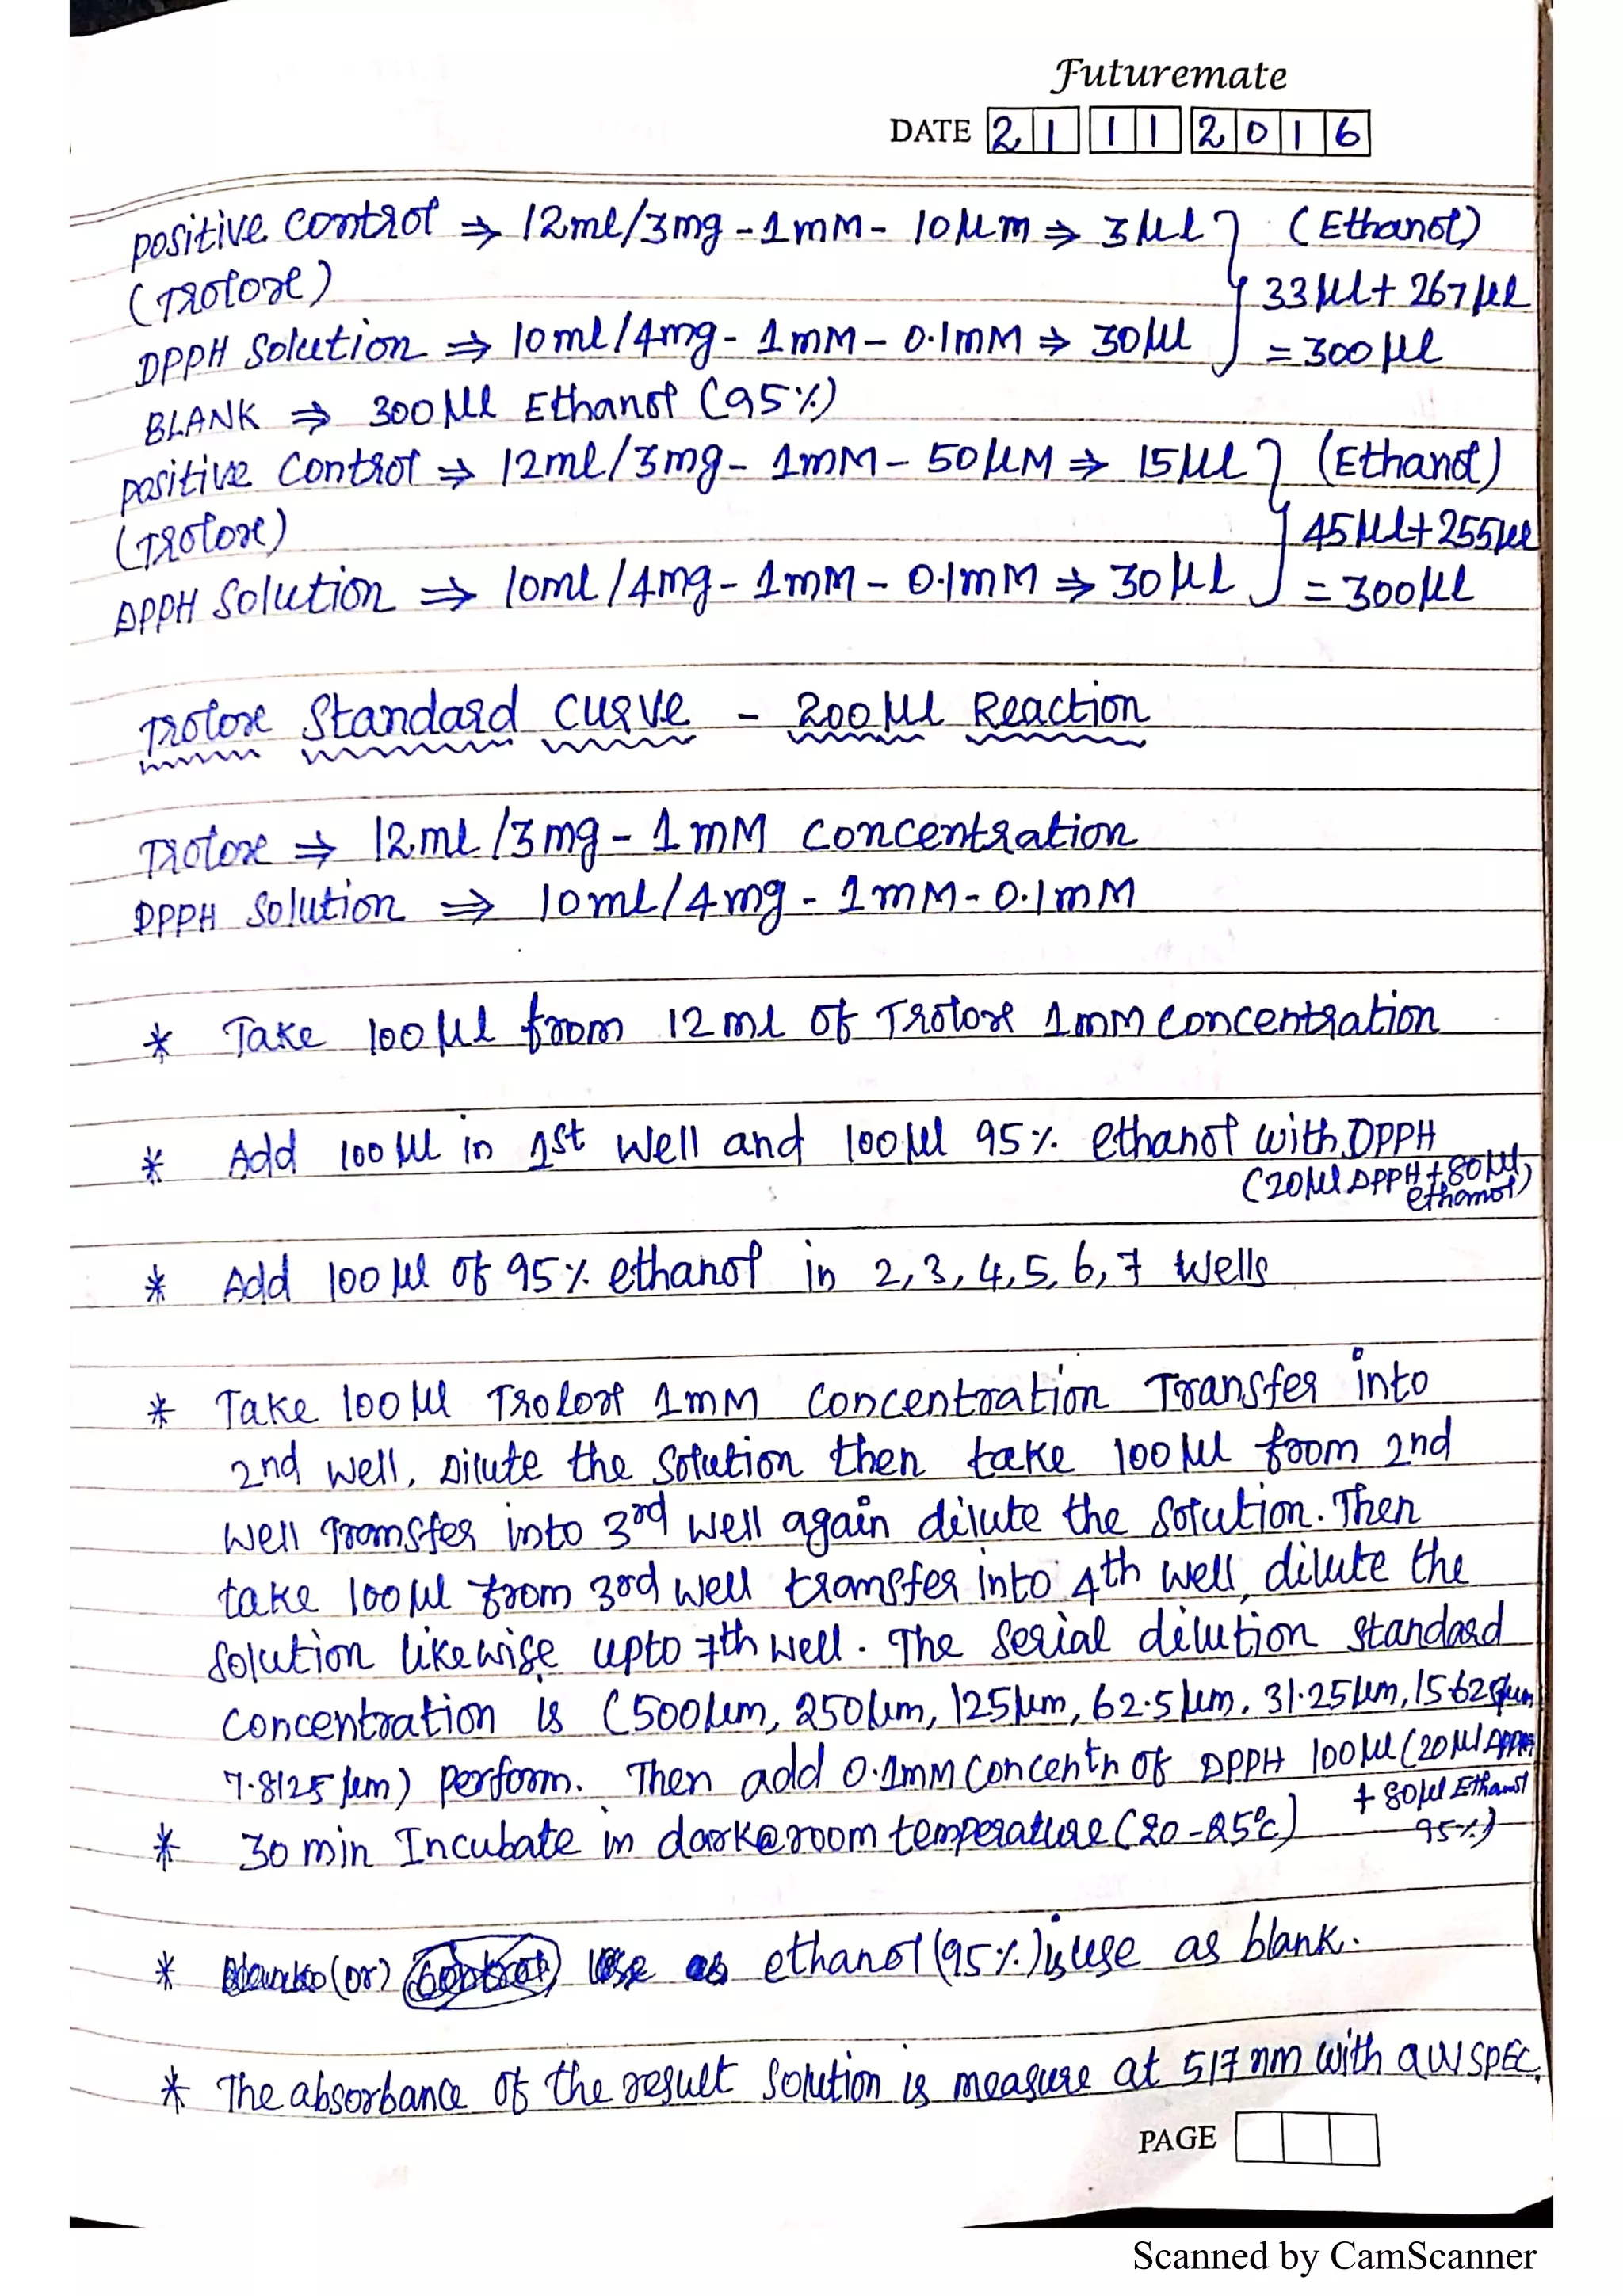 Futuremate
DATE 21 11 2016
positive control ⇒ 12ml/3mg - 1mM - 10µm ⇒ 3µl } (Ethanol)
(Trolox) 33µl + 267µl
DPPH Solution ⇒ 10ml/4mg - 1mM - 0.1mM ⇒ 30µl = 300µl
BLANK ⇒ 300µl Ethanol (95%)
positive Control ⇒ 12ml/3mg - 1mM - 50µM ⇒ 15µl } (Ethanol)
(Trolox) 45µl + 255µl
DPPH Solution ⇒ 10ml/4mg - 1mM - 0.1mM ⇒ 30µl = 300µl
Trolox Standard curve - 200µl Reaction
Trolox ⇒ 12ml/3mg - 1mM concentration
DPPH Solution ⇒ 10ml/4mg - 1mM - 0.1mM
* Take 100µl from 12ml of Trolox 1mM concentration
* Add 100µl in 1st well and 100µl 95% ethanol with DPPH
(20µl DPPH + 80µl
ethanol)
* Add 100µl of 95% ethanol in 2,3,4,5,6,7 wells
* Take 100µl Trolox 1mM concentration Transfer into
2nd well, Dilute the solution then take 100µl from 2nd
well Transfer into 3rd well again dilute the solution. Then
take 100µl from 3rd well transfer into 4th well, dilute the
solution likewise upto 7th well. The serial dilution standard
concentration is (500µm, 250µm, 125µm, 62.5µm, 31.25µm, 15.625µm,
7.8125µm) perform. Then add 0.1mM concentn of DPPH 100µl (20µl DPPH
+ 80µl Ethanol
95%)
* 30 min Incubate in dark@room temperature (20-25°c)
* (or) use as ethanol (95%) is use as blank.
* The absorbance of the result solution is measure at 517nm with a UVSPEC.
PAGE
Scanned by CamScanner